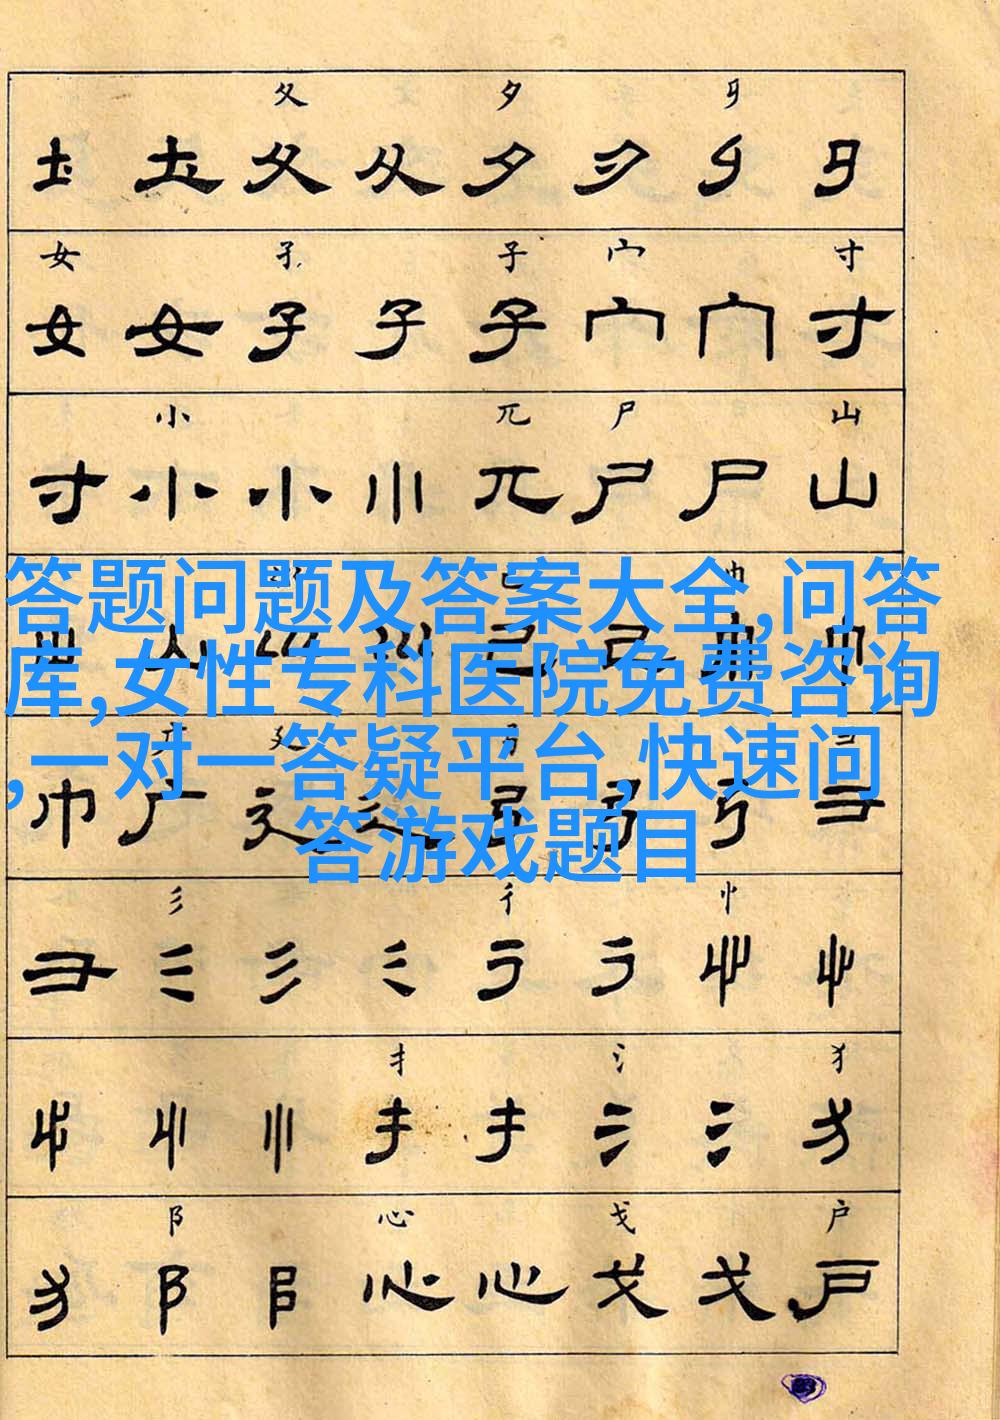 夂 夕 𠃛
土 土 夂 夂 夕 夕
女 孑 子 宀 寸
女 女 子 子 子 宀 宀 寸
小 兀 尸 山
寸 小 小 小 兀 尸 尸 山
答题问题及答案大全,问答
库,女性专科医院免费咨询
,一对一答疑平台,快速问
答游戏题目
巾 广 廴 弓 彐
彡 彳 忄
彐 彡 彡 彡 彳 彳 忄 忄
扌 氵 犭
忄 忄 忄 扌 扌 氵 氵 犭
阝 心 戈 户
犭 阝 阝 心 心 戈 戈 户